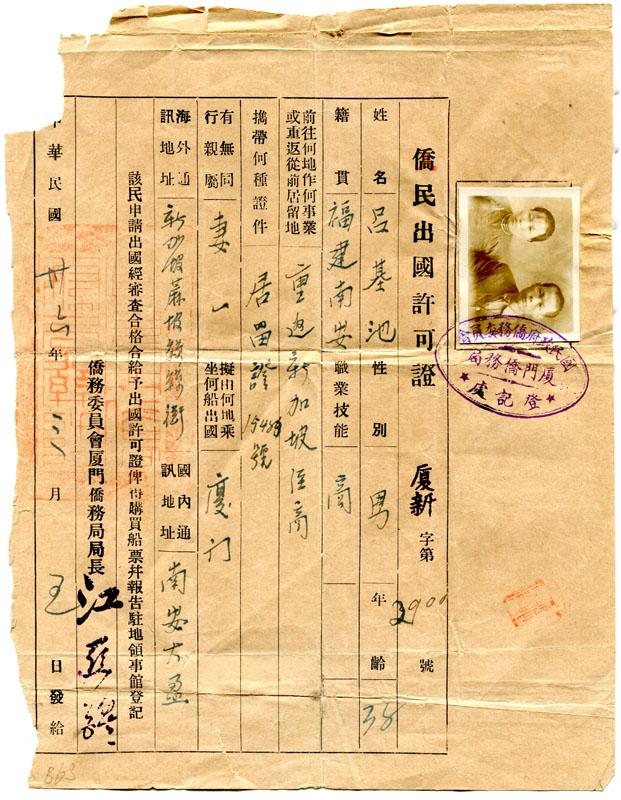 僑民出國許可證 廈新字第3900號
姓名 呂基池 性別 男 年齡 38
籍貫 福建南安 職業技能 商
前往何地作何事業或重返從前居留地 重返新加坡經商
攜帶何種證件 居留證 號
有無同行親屬 妻一 擬由何地乘坐何船出國 廈门
海外通訊地址 新加坡 街 國內通訊地址 南安大盈
該民申請出國經審查合格合給予出國許可證俾得購買船票并報告駐地領事館登記
僑務委員會廈門僑務局局長 江亞醒
華民國卅六年三月五日發給
國民政府僑務委員會
廈門僑務局
登記處
B63